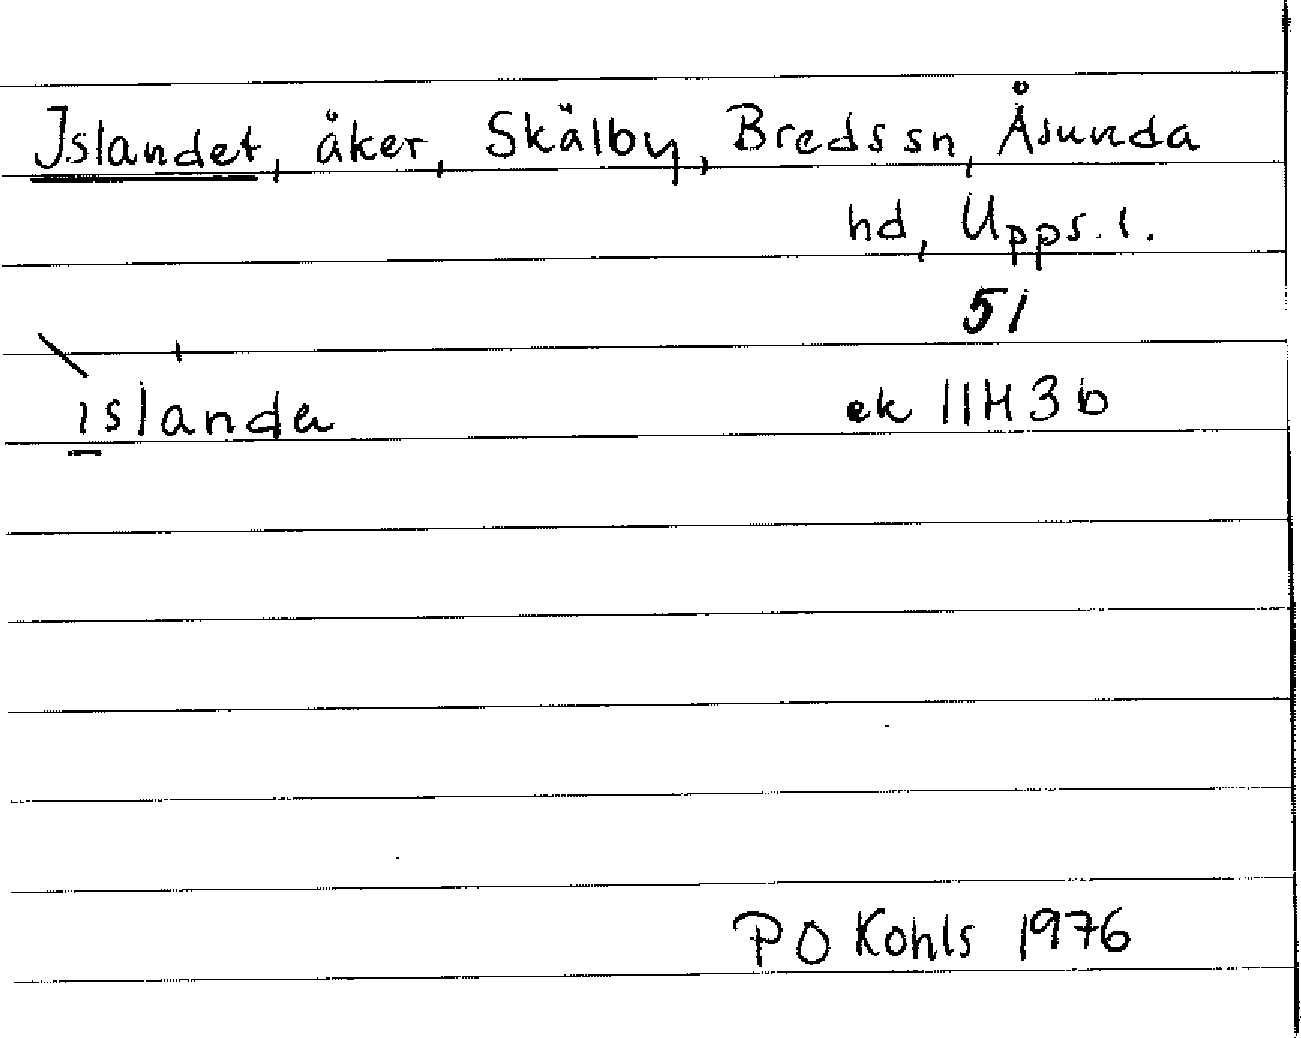 Islandet, åker, Skälby, Breds sn, Åsunda
hd, Upps. l.
51
islanda ek 11H3b
P O Kohls 1976